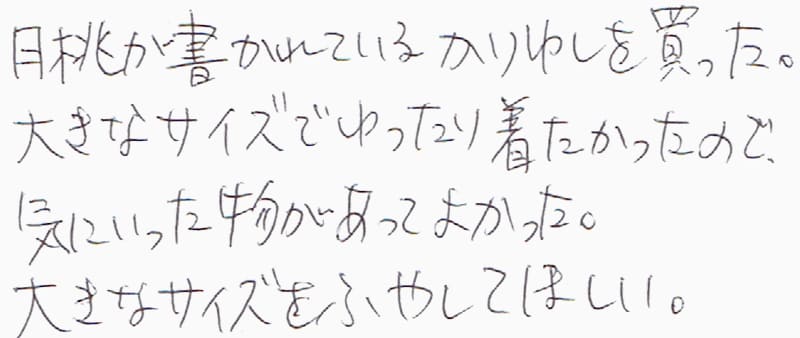 月桃が書かれているかりゆしを買った。
大きなサイズでゆったり着たかったので、
気にいった物があってよかった。
大きなサイズをふやしてほしい。